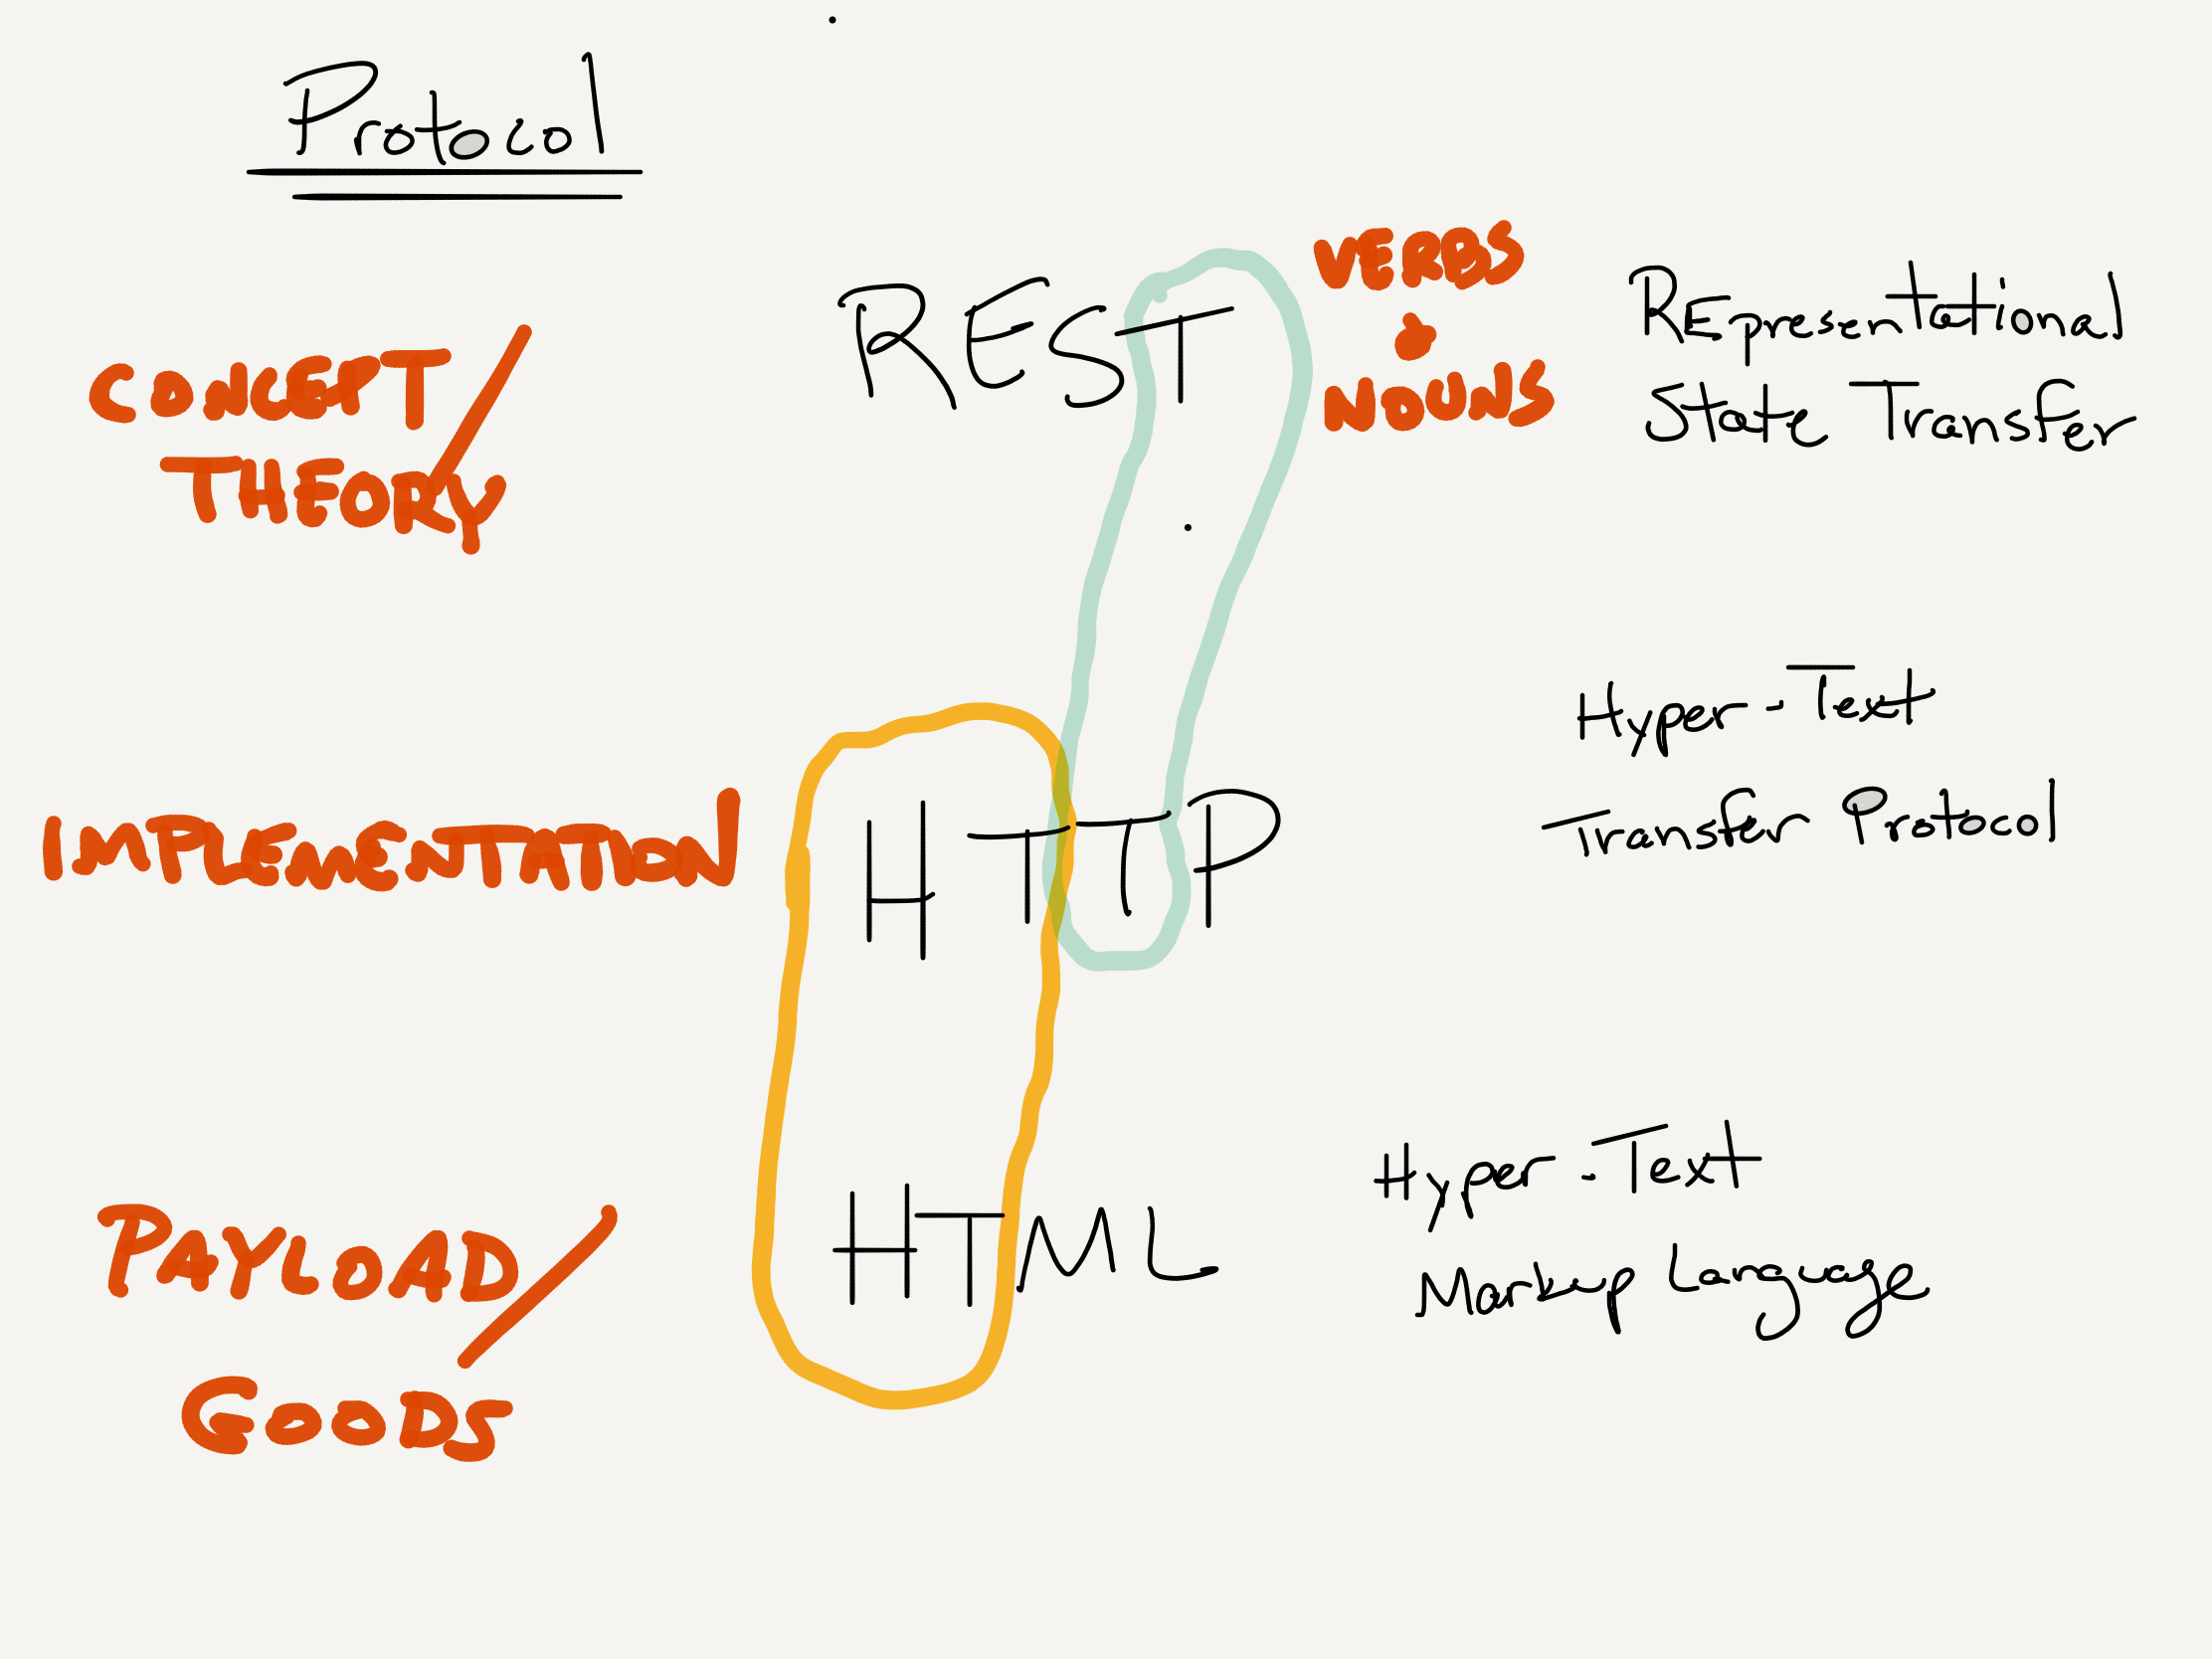 Protocol
REST
VERBS
&
NOUNS
REpresentational
State Transfer
CONCEPT/
THEORY
IMPLEMENTATION
HTTP
Hyper-Text
Transfer Protocol
PAYLOAD/
GOODS
HTML
Hyper-Text
Markup Language